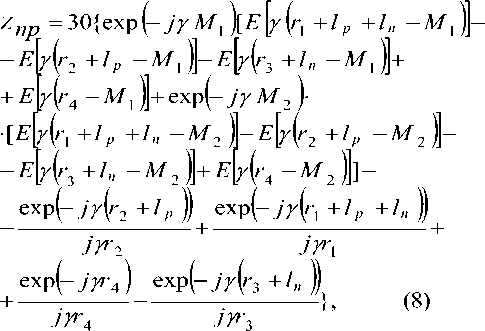 z_{np} = 30{exp(-jγ M_1)[E[γ(r_1 + l_p + l_n - M_1)]-
- E[γ(r_2 + l_p - M_1)]-E[γ(r_3 + l_n - M_1)]+
+ E[γ(r_4 - M_1)]+exp(-jγ M_2)·
·[E[γ(r_1 + l_p + l_n - M_2)]-E[γ(r_2 + l_p - M_2)]-
-E[γ(r_3 + l_n - M_2)]+E[γ(r_4 - M_2)]]-
- \frac{exp(-jγ(r_2 + l_p))}{jγr_2} + \frac{exp(-jγ(r_1 + l_p + l_n))}{jγr_1} +
+ \frac{exp(-jγr_4)}{jγr_4} - \frac{exp(-jγ(r_3 + l_n))}{jγr_3}}, (8)